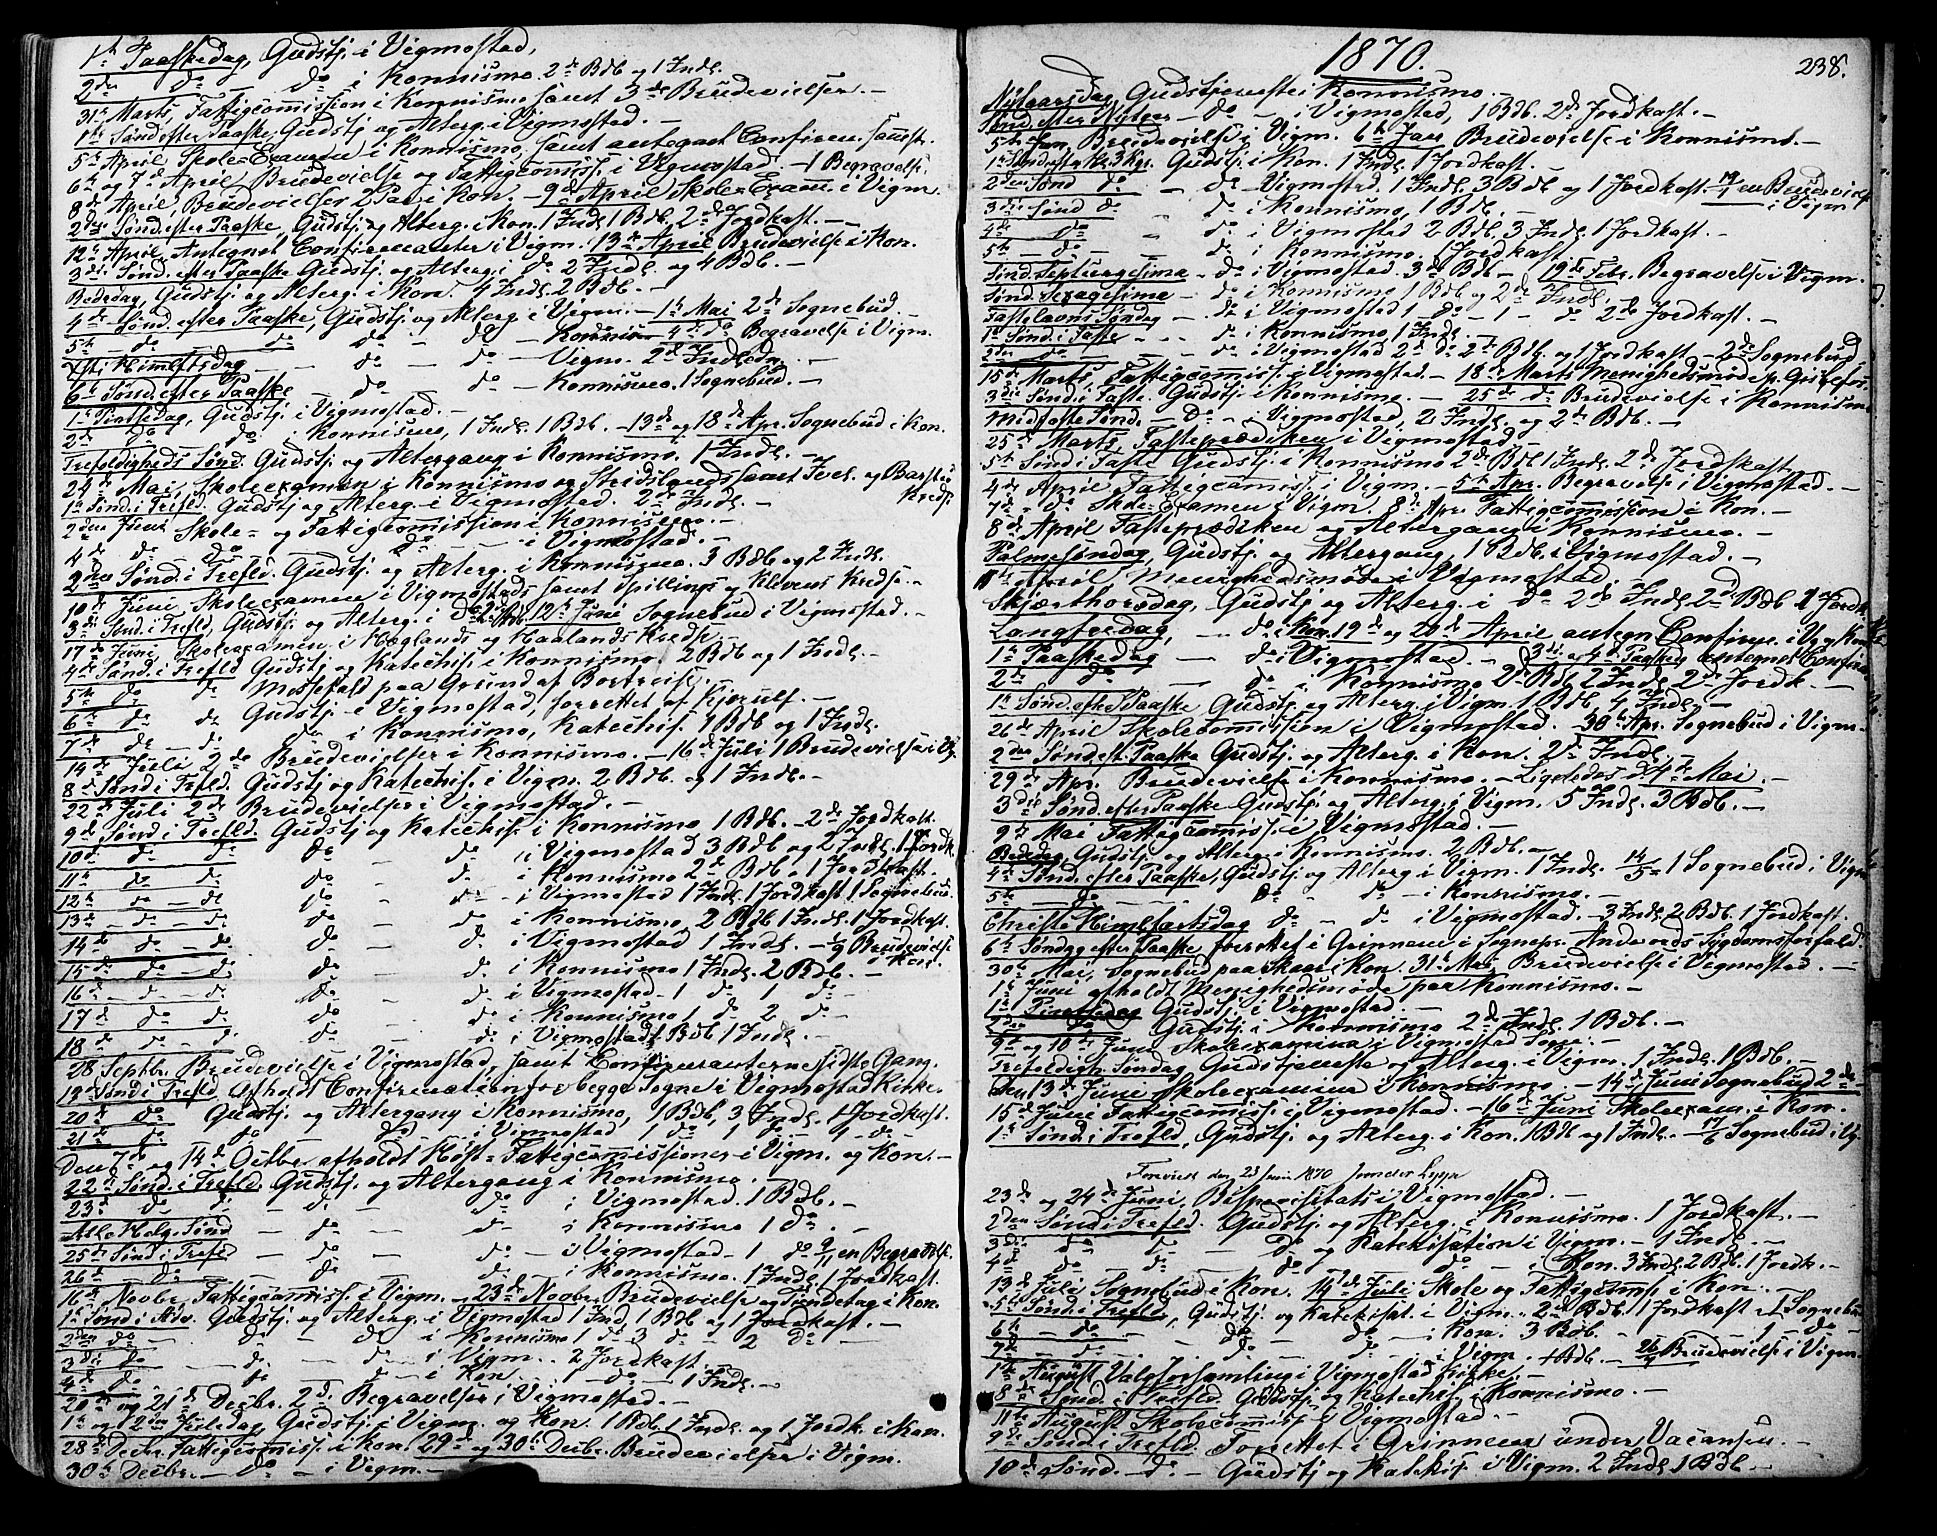 1st Paaskedag, Gudstj. i Vigmostad,
2den do - do i Konnismo. 2de Bdb og 1 Indl.
31te Marts, Fattigcomission i Konnismo samt 3de Brudevielser. -
1ste Sønd. efter Paaske, Gudstj. og Alterg. i Vigmostad. -
5te April Skole-Examen i Konnismo, samt antegnet Confirm. samst.
6te og 7de April Brudevielse og Fattigcomiss. i Vigmostad. - 1 Begravelse.
8de April, Brudevielser 2 Par i Kon. - 9de April Skole-Exam. i Vigm.
2den Sønd. efter Paaske, Gudstj. og Alterg. i Kon. 1 Indl. 1 Bdb. 2de Jordkast. -
12te April, Antegnet Confirmanter i Vigm. 13de April Brudevielse i Kon.
3die Sønd. efter Paaske Gudstj. og Alterg. i do 2 Indl. og 4 Bdb. -
Bededag, Gudstj. og Alterg. i Kon. 4 Indl. 2 Bdb. -
4de Sønd. efter Paaske, Gudstj. og Alterg. i Vigm. - 1ste Mai 2de Sognebud.
5te - do - do - do - do - Konnismo 4de do Begravelse i Vigm.
Xsti Himlftsdag - do - do - Vigm. 2de Indledn. -
6te Sønd. efter Paaske do do - Konnismo. 1 Sognebud. -
1ste Pintsedag, Gudstj. i Vigmostad. -
2den do do i Konnismo, 1 Indl. 1 Bdb. - 13de og 18de Apr. Sognebud i Kon.
Trefoldigheds Sønd. Gudstj. og Altergang i Konnismo. 1 Indl. -
24de Mai, Skoleexamen i Konnismo og Stridslands samt Ivel. og Barstad Kreds.
1ste Sønd. i Trefld. Gudstj. og Alterg. i Vigmostad. 2de Indl. -
2den Juni Skole- og Fattigcomission i Konnismo. -
4de do do do - i Vigmostad. -
2den Sønd. i Trefld. Gudstj. og Alterg. i Konnismo. 3 Bdb og 2 Indl.
10de Juni, Skoleexamen i Vigmostads samt Spillings og Klevens Kredse. -
3die Sønd. i Trefld, Gudstj. og Alterg. i do 12te Juni Sognebud i Vigmostad. -
17de Juni Skoleexamen i Høglands og Haalands Kreds. -
4de Sønd. i Trefld Gudstj. og Katechis. i Konnismo. 2 Bdb og 1 Indl. -
5te do do Messefald paa Grund af Bortreise. -
6te do do Gudstj. i Vigmostad, forrettet af Kjerulf. -
7de do - do do i Konnismo, Katechis. 1 Bdb og 1 Indl.
14de Juli 2de Brudevielser i Konnismo. - 16de Juli 1 Brudevielse i Vg.
8de Sønd i Trefld. Gudstj. og Katechis. i Vigm. 2 Bdb. og 1 Indl. -
22de Juli 2de Brudevielser i Vigmostad. -
9de Sønd i Trefld. Gudstj og Katechis. i Konnismo 1 Bdb. - 2de Jordkast.
10de do do do - do i Vigmostad 3 Bdb og 2 Indl. 1 Jordk.
11te do do do - do i Konnismo 2de Bdb. 1 Jordkast.
12te - do - do do - do - i Vigmostad 1 Indl. 1 Jordkast 1 Sognebud.
13de - do - do do - do i Konnismo, 2 Bdb 1 Indl. 1 Jordkast.
14de - do - do do - do i Vigmostad 1 Indl. - Brudevielse i Kon.
15de - do - do do - do i Konnismo 1 Indl. 2 Bdb. -
16de - do - do do - do i Vigmostad - 1 do 1 do -
17de do do do - do i Konnismo 1 do 2 do -
18de do - do do - do i Vigmostad 1 Bdb 1 Indl. -
28 Septbr. Brudevielse i Vigmostad, samt Confirmanterne sidste Gang.
19de Sønd i Trefld Afholdt Confirmation for begge Sogne i Vigmostad Kirke.
20de do Gudstj. og Altergang i Konnismo, 1 Bdb, 3 Indl. 1 Jordkast.
21de do do do - i Vigmostad 1 do 1 do 4 do -
Den 7de og 14de Octbr. afholdt Høst-Fattigcomissioner i Vigm. og Kon. -
22de Sønd. i Trefld. Gudstj. og Altergang i Konnismo. -
23de do do - do - do i Vigmostad. 1 Bdb. -
Alle Helg. Sønd - do - do - i Konnismo 1 do. -
25de Sønd. i Trefld do - do - i Vigmostad - 1 do 9/11 en Begravelse.
26de do do - do i Konnismo. 1 Indl. 1 Jordkast.
16de Novbr. Fattigcomiss. i Vigm. - 23de Novbr. Brudevielse og Tiendetag i Kon.
1ste Sønd i Adv. Gudstj. og Alterg. i Vigmostad 1 Ind, 1 Bdb og 1 Jordkast. -
2den do - do - do i Konnismo 1 do 3 do - 2 do -
3die do - do - do - i Vigm. 2 Jordkast. -
4de do - do - do i Kon. 1 do - 1 Indl. -
20de og 21de Decbr. 2de Begravelser i Vigmostad. -
1ste og 2den Juledag, Gudstj. i Vigm. og Kon. 1 Bdb. 1 Indl. og 1 Jordk. i Kon.
28de Decbr. Fattigcomiss. i Kon. 29de og 30te Decbr. Brudevielser i Vigm.
30te Decbr. - do - i Vigm. -
1870.
238.
Nytaarsdag, Gudstjeneste i Konnismo. -
Sønd. efter Nytaar - do - i Vigmostad, 1 Bdb. 2de Jordkast. -
5te Jan. Brudevielse i Vigm. 6te Jan Brudevielse i Konnismo. -
1ste Sønd. efter H. 3 Kgr. Gudstj. i Kon. 1 Indl. 1 Jordkast.
2den Sønd do - do - Vigmostad. 1 Indl. 3 Bdb og 1 Jordkast. 19/1 en Brudevielse i Vigm
3die Sønd do - do i Konnismo, 1 Bdb. -
4de do - do i Vigmostad 2 Bdb. 3 Indl. 1 Jordkast. -
5te - do - - do i Konnismo, 1 Jordkast. -
Sønd. Septuagesima - do i Vigmostad. 3de Bdb - 19de Febr. Begravelse i Vigm.
Sønd. Sexagesima - do i Konnismo 1 Bdb og 2de Indl.
Fastelavns Søndag - do i Vigmostad 1 do - 1 - do 2de Jordkast. -
1ste Sønd. i Faste - - do i Konnismo, 1 Indl. -
2den do - - do i Vigmostad 2de do 2de Bdb. og 1 Jordkast - 2de Sognebud
15de Marts, Fattigcomiss. i Vigmostad. - 18de Marts Menighedsmøde p. Grislefos.
3die Sønd. i Faste. Gudstj. i Konnismo. - 25de do Brudevielse i Konnismo
Midfaste Sønd. - do - i Vigmostad, 2 Indl. og 2de Bdb. -
25de Marts Fasteprædiken i Vigmostad -
5te Sønd i Faste Gudstj. i Konnismo 2de Bdb 1 Indl. 2de Jordkast
4de April Fattigcomiss. i Vigm. - 5te Apr. Begravelse i Vigmostad. -
7de - do Skole-Examen i Vigm. 8de Apr. Fattigcomission i Kon. -
8de April Fasteprædiken og Altergang i Konnismo. -
Palmesøndag, Gudstj. og Altergang, 1 Bdb. i Vigmostad. -
11te April Menighedsmøde i Vigmostad. -
Skjærthorsdag, Gudstj. og Alterg. i do 2de Indl 2de Bdb 1 Jordk.
Langfredag, - do i Kon. 19de og 20de April antegn. Confirm. i Vg og Kon.
1ste Paaskedag - do i Vigmostad. - 3die og 4de Paasked. antegnet Confirm.
2den do - do i Konnismo 2de Bdb 2 Indl. 2de Jordk. -
1ste Sønd. efter Paaske Gudstj. og Alterg. i Vigm. 1 Bdb, 4 Indl. -
26de April Skolecomission i Vigmostad. - 30te Apr. Sognebud i Vigm. -
2den Sønd. eft. Paaske Gudstj. og Alterg. i Kon. 2de Indl. -
29de Apr. Brudevielse i Konnismo. - Ligeledes d. 4de Mai. -
3die Sønd. efter Paaske Gudstj. og Alterg. i Vigm. 5 Indl. 3 Bdb. -
9de Mai Fattigcomiss. i Vigmostad. -
Bededag, Gudstj. og Alterg. i Konnismo. 2 Bdb. -
4de Sønd. efter Paaske, Gudstj. og Alterg i Vigm. 1 Indl. 14/5 - 1 Sognebud i Vigm
5te - do - do - do - i Konnismo. -
Christi Himelfartsdag do - do i Vigmostad. - 3 Indl. 2 Bdb. 1 Jordkast.
6te Søndag efter Paaske forrettet i Grinnem i Sognepr. Andvords Sygdomsforfald.
30te Mai, Sognebud paa Skaar i Kon. 31te Mai Brudevielse i Vigmostad. -
1ste Juni afholdt Menighedsmøde paa Konnismo. -
1ste Pintsedag Gudstj. i Vigmostad -
2den do Gudstj. i Konnismo 2de Indl. 1 Bdb. -
9de og 10de Juni Skoleexamina i Vigmostad Sogn. -
Trefoldigh. Søndag Gudstjeneste og Alterg. i Vigm. 1 Indl. 1 Bdb. -
Den 13de Juni Skoleexamina i Konnismo. - 14de Juni Sognebud 2de
15de Juni Fattigcomiss. i Vigmostad. - 16de Juni Skoleexam. i Kon.
1ste Sønd. i Trefld, Gudstj. og Alterg. i Kon. 1 Bdb og 1 Indl. 17/6 Sognebud i Vg.
Foreviist den 23 Juni 1870
23de og 24de Juni, Bispevisitats i Vigmostad. -
2den Sønd i Trefld. Gudstj. og Alterg. i Konnismo. 1 Jordkast. -
3die do do - do og Katekisation i Vigm. - 1 Indl. -
4de do do - do - do - i Kon. 3 Indl. 2 Bdb. 1 Jordk. -
13de Juli Sognebud i Kon. 14de Juli Skole og Fattigcoms. i Kon. -
5te Sønd i Trefld, Gudstj. og Katekisat. i Vigm. 2de Bdb. 1 Jordkast 1 Sognebud
6te - do - do do - i Kon. 3 Bdb. - 1 - do -
7de - do - do - do - i Vigm. 4 Bdb. - 26/7 Brudevielse i Vigm.
1ste August Valgforsamling i Vigmostad Kirke. -
8de Sønd. i Trefld. Gudstj. og Katechis. i Konnismo. -
11te August Skolecomiss. i Vigmostad. -
9de Sønd. i Trefld. Forrettet i Grinnem under Vacansen. -
10de Sønd. - do - Gudstj. og Katekis. i Vigm. 2 Indl. 1 Bdb -